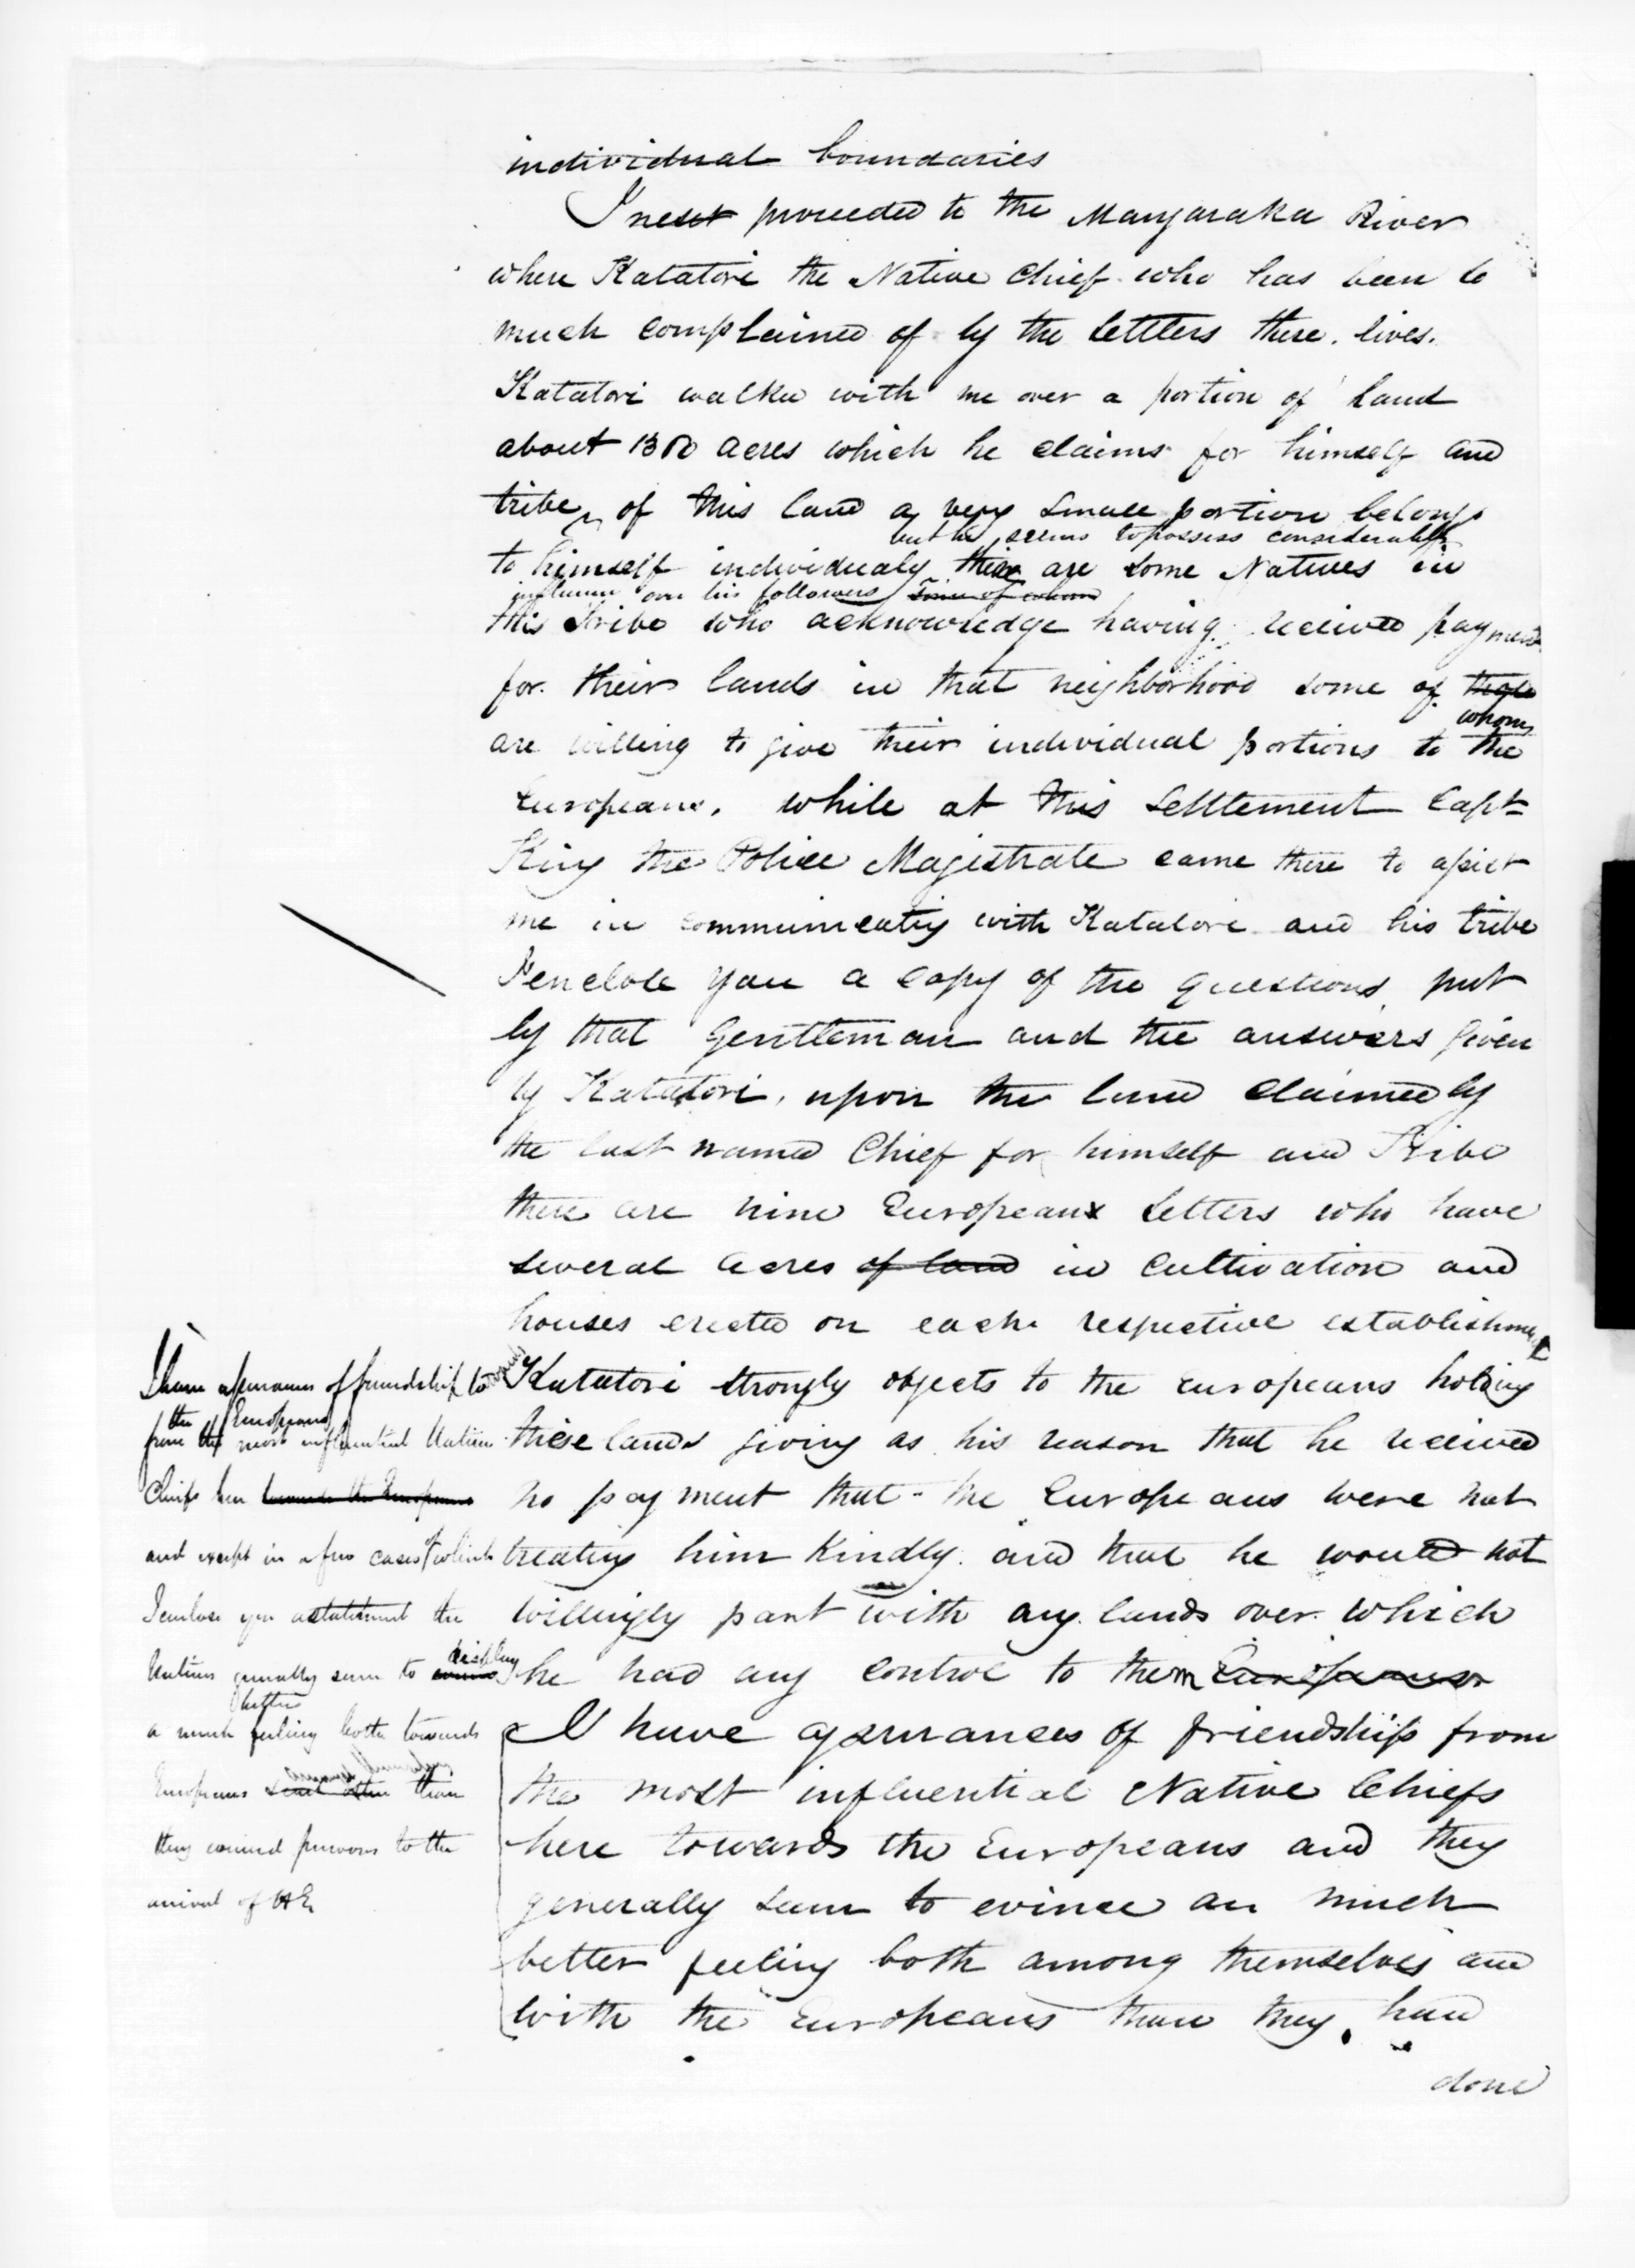 individual boundaries
I next proceeded to the Mangaraka River
where Katatori the Native Chief who has been so
much complained of by the settlers there. lives.
Katatori walked with me over a portion of land
about 1300 acres which he claims for himself and
tribe, of this land a very small portion belongs
but he seems to possess considerable
to himself individualy there are some Natives in
influence over his followers some of whom
this tribe who acknowledge having received payment
for their lands in that neighborhood some of
whom
are willing to give their individual portions to the
Europeans. while at this settlement Capt
King the Police Magistrate came there to assist
me in communicatig with Katatori and his tribe
I enclose you a copy of the questions put
by that Gentleman and the answers given
by Katatori, upon the land claimed by
the last named Chief for himself and Tribe
there are nine European settlers who have
several acres of land in cultivation and
houses erected on each respective establishment
Katatori strongly objects to the Europeans holding
these lands giving as his reason that he received
no payment that the Europeans were not
treating him Kindly and that he would not
willingly part with any lands over which
he had any control to them Europeans
I have assurances of friendship from
the most influential Native Chiefs
here towards the Europeans and they
generally seem to evince an much
better feeling both among themselves and
with the Europeans than they have
done
I have assurances of friendship towards
the Europeans
from the most influential Native
Chiefs here towards the Europeans
and except in a few cases of which
I enclose you a statement the
Natives generally seem to evince
display
better
a much feeling both towards
Europeans than
they evinced previous to the
arrival of HE